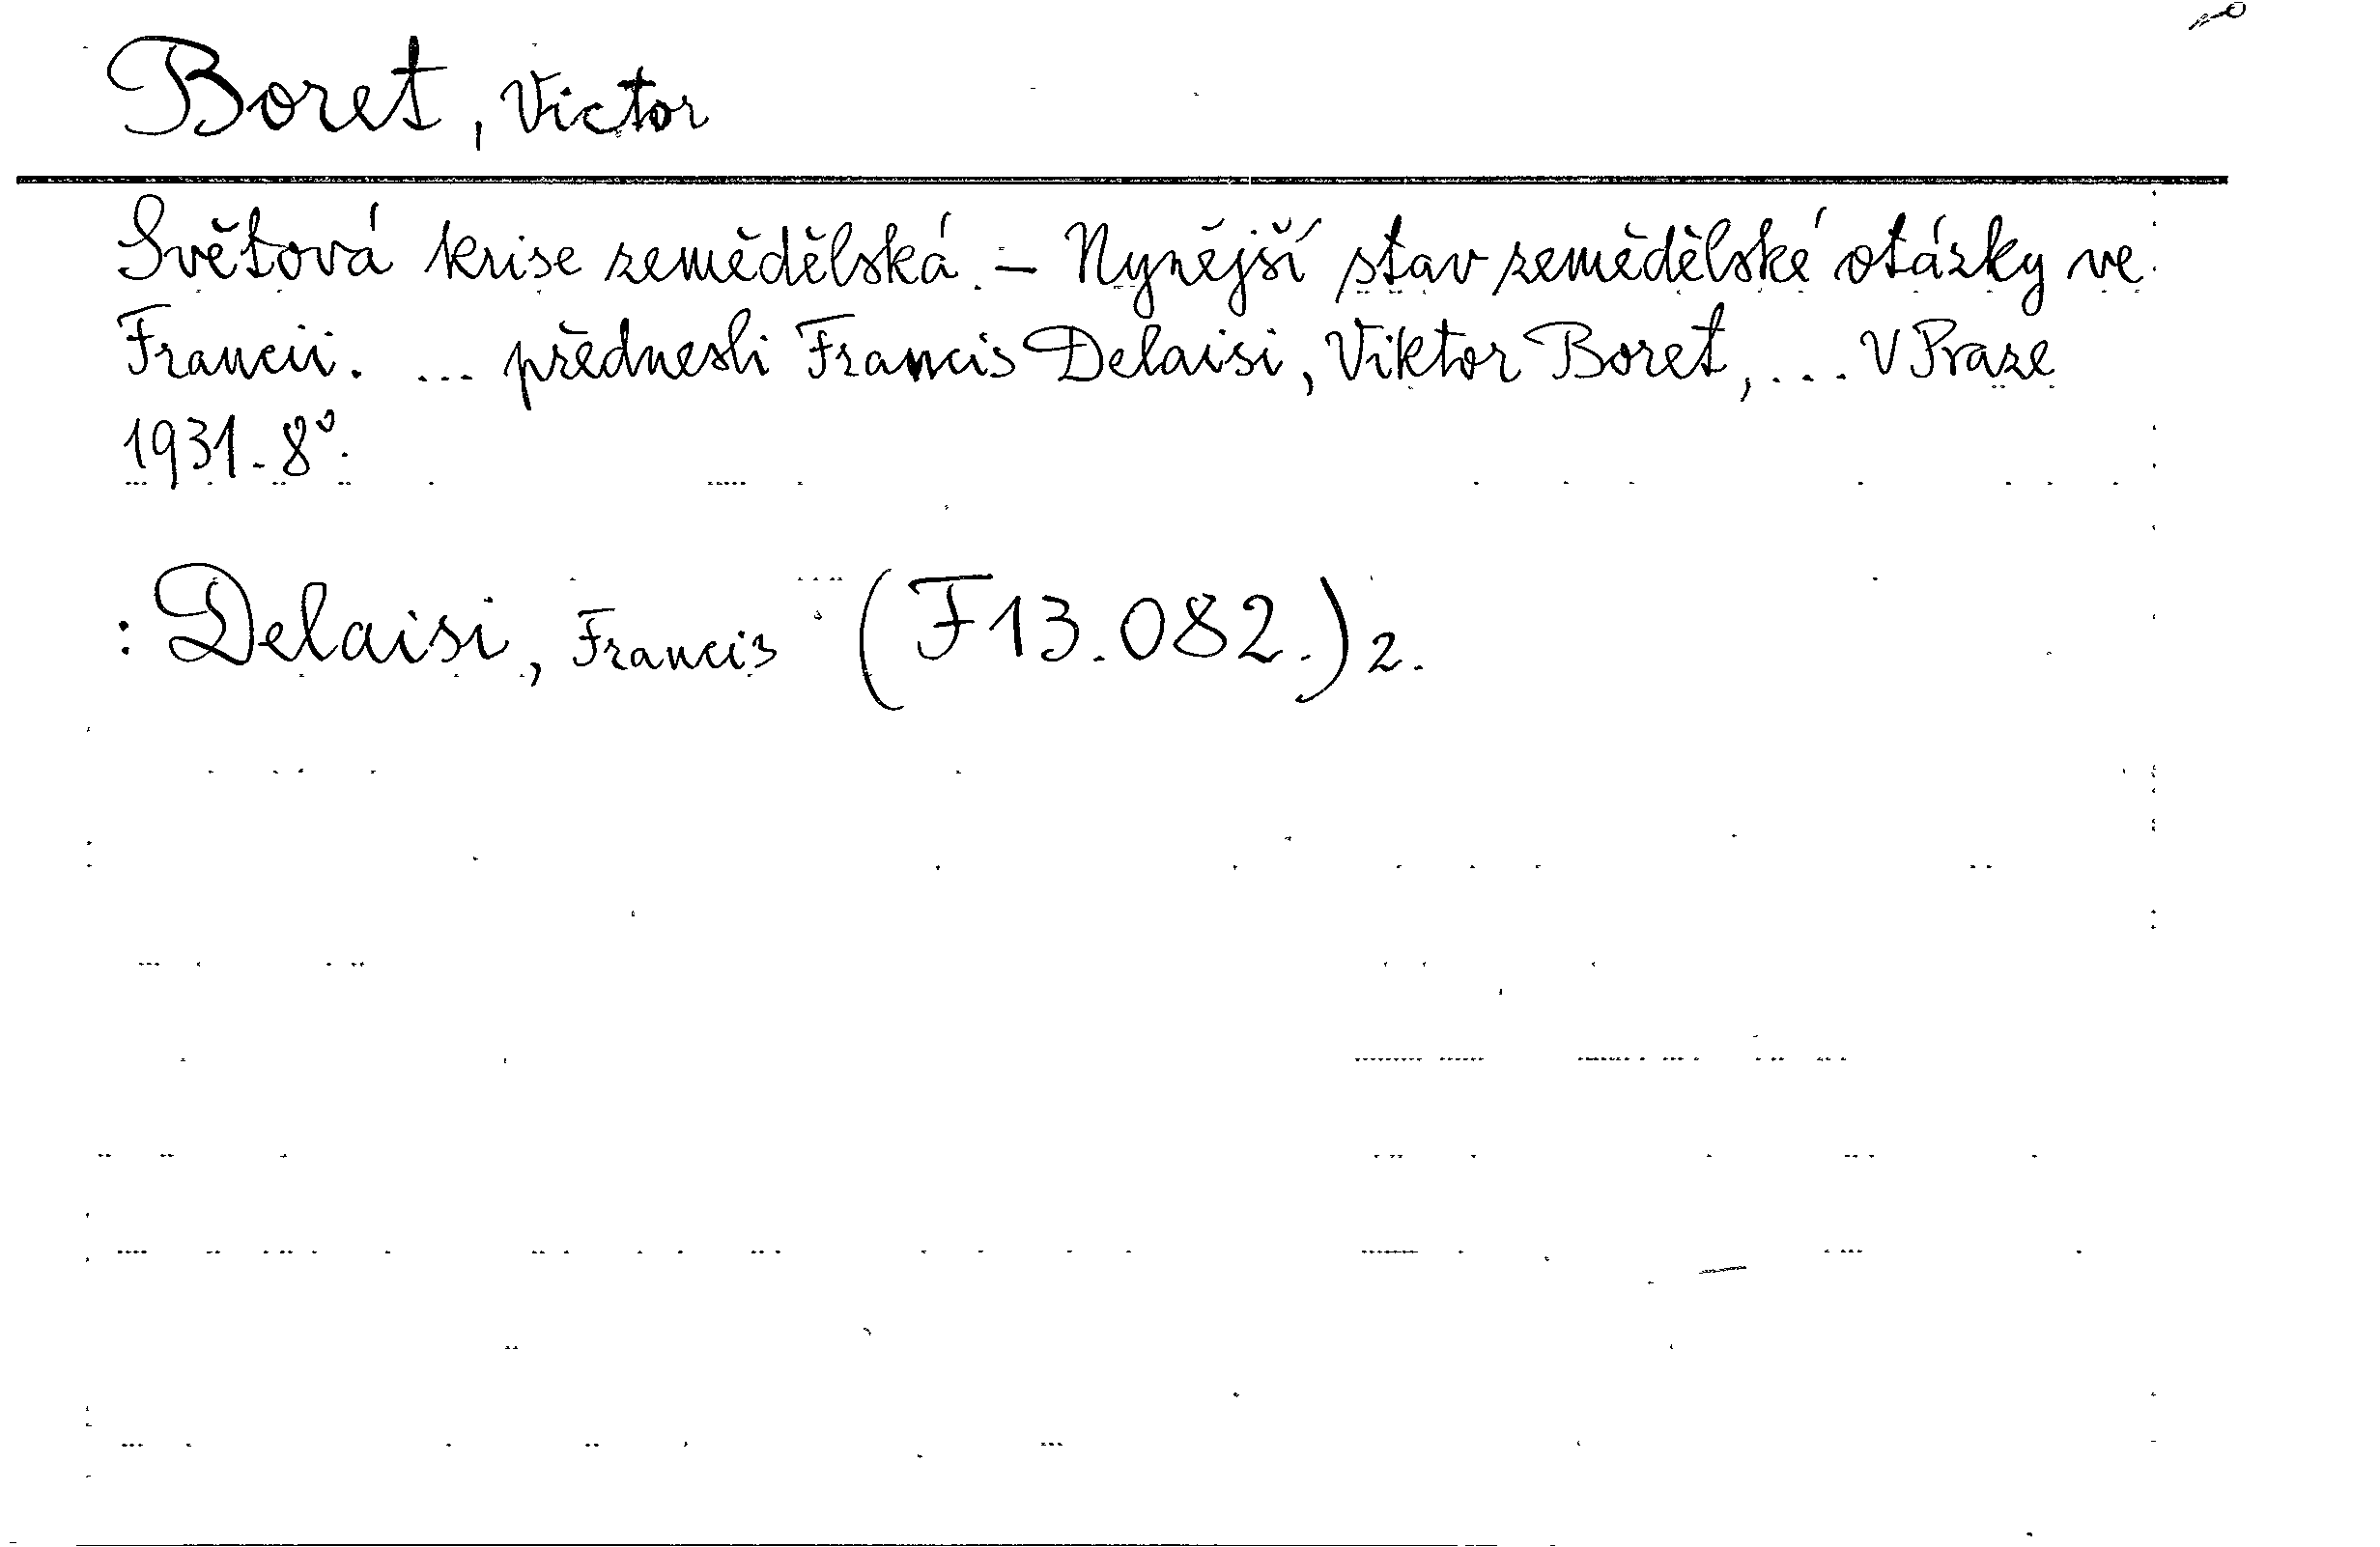 Boret, Victor
Světová krise zemědělská. – Nynější stav zemědělské otázky ve
Francii. ... přednesli Francis Delaisi, Viktor Boret, ... V Praze
1931. 8°.
: Delaisi, Francis (F13.082.) 2.